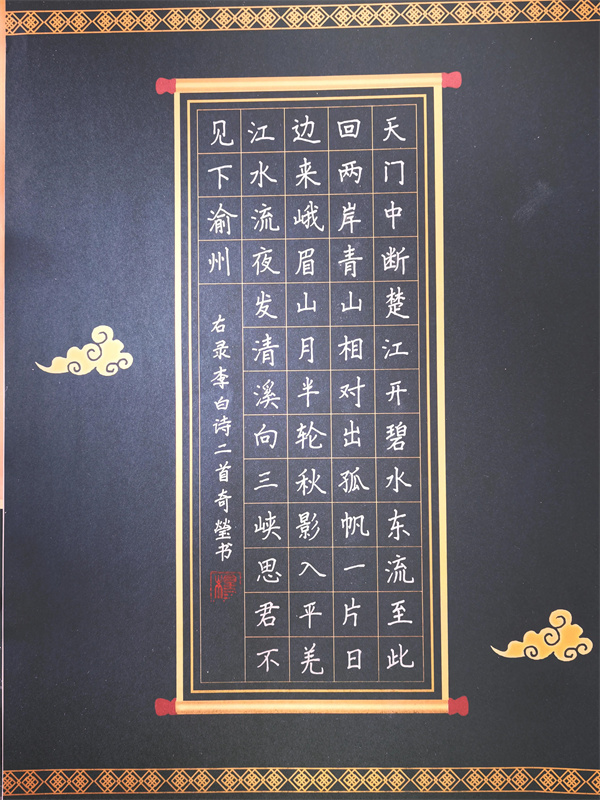 天门中断楚江开碧水东流至此
回两岸青山相对出孤帆一片日
边来峨眉山月半轮秋影入平羌
江水流夜发清溪向三峡思君不
见下渝州
右录李白诗二首奇莹书